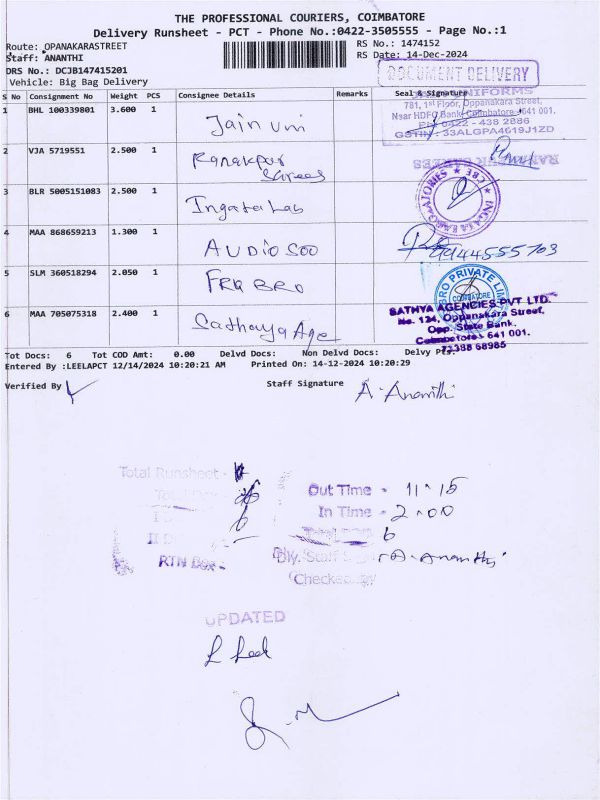 THE PROFESSIONAL COURIERS, COIMBATORE
Delivery Runsheet - PCT - Phone No.:0422-3505555 - Page No.:1
Route: OPANAKARASTREET
RS No.: 1474152
Staff: ANANTHI
RS Date: 14-Dec-2024
DRS No.: DCJB147415201
DOCUMENT DELIVERY
Vehicle: Big Bag Delivery
S No Consignment No Weight PCS Consignee Details Remarks Seal & Signature
1 BHL 100339801 3.600 1 Jain Uni
UNIFORMS
781, 1st Floor, Oppanakara Street,
Near HDFC Bank, Coimbatore-641 001.
PH: 0422 - 438 2886
GSTIN : 33ALGPA4619J1ZD
2 VJA 5719551 2.500 1 Ranakpur
Sarees
3 BLR 5005151083 2.500 1 Ingata Lab
4 MAA 868659213 1.300 1 AUDIO SOO
9944555703
5 SLM 360518294 2.050 1 FRQ BRO
BRO PRIVATE LIM
COIMBATORE
6 MAA 705075318 2.400 1 Sathya Age
SATHYA AGENCIES PVT LTD.
No. 124, Oppanakara Street,
Opp. State Bank,
Coimbatore - 641 001.
73388 68985
Tot Docs: 6 Tot COD Amt: 0.00 Delvd Docs: Non Delvd Docs: Delvy Pts:
Entered By :LEELAPCT 12/14/2024 10:20:21 AM Printed On: 14-12-2024 10:20:29
Verified By
Staff Signature A. Ananthi
Total Runsheet -
Out Time - 11-15
In Time - 2-00
6
II D
RTN Docs -
Dly. Staff A. Ananthi
Checked By
UPDATED